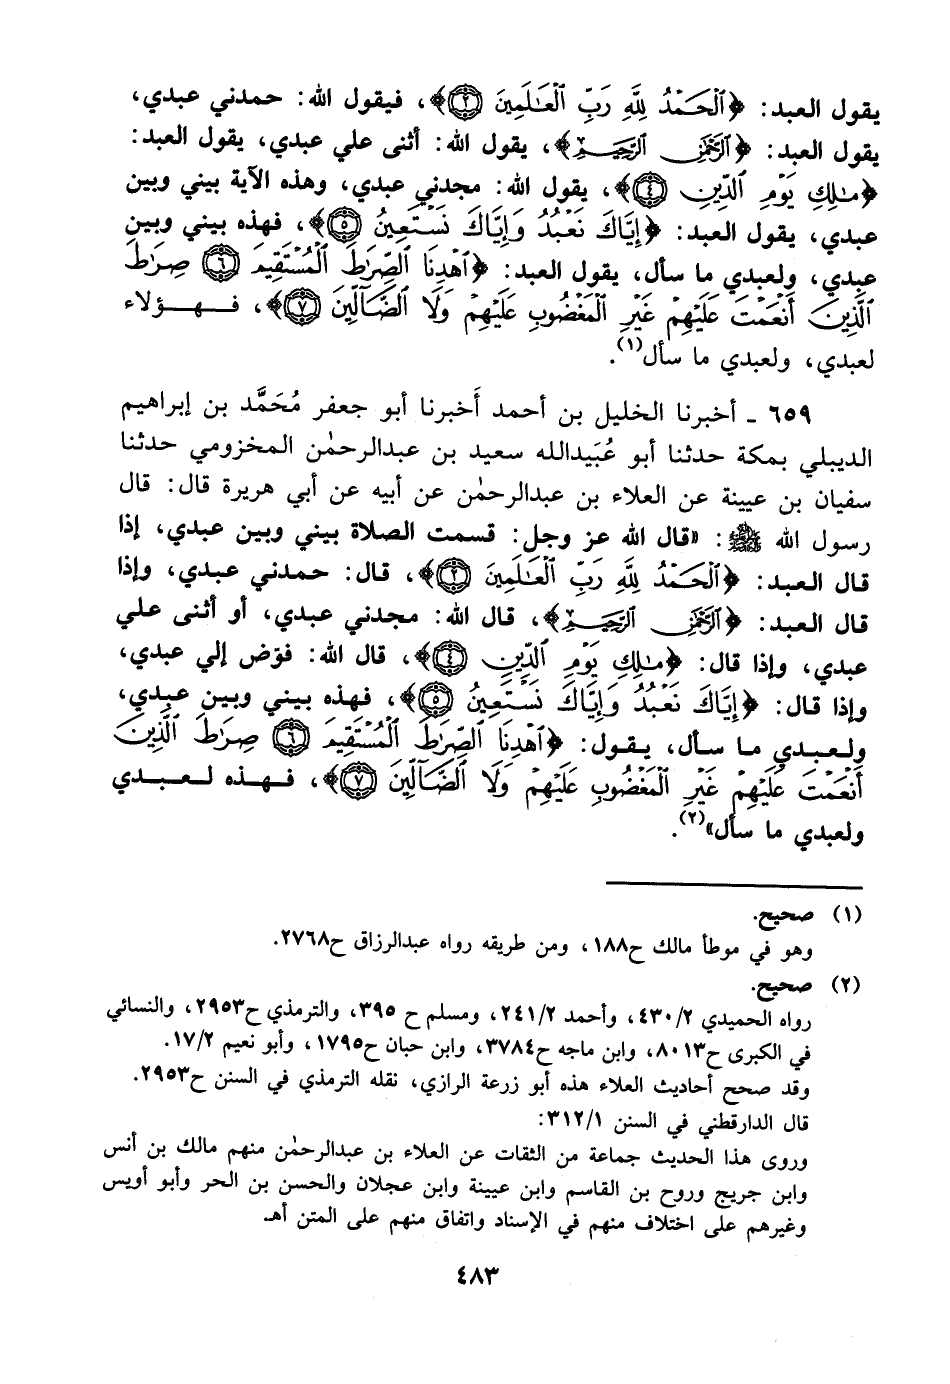 يقول العبد: ﴿ٱلْحَمْدُ لِلَّهِ رَبِّ ٱلْعَٰلَمِينَ ٢﴾، فيقول الله: حمدني عبدي،
يقول العبد: ﴿ٱلرَّحْمَٰنِ ٱلرَّحِيمِ﴾، يقول الله: أثنى علي عبدي، يقول العبد:
﴿مَٰلِكِ يَوْمِ ٱلدِّينِ ٤﴾، يقول الله: مجدني عبدي، وهذه الآية بيني وبين
عبدي، يقول العبد: ﴿إِيَّاكَ نَعْبُدُ وَإِيَّاكَ نَسْتَعِينُ ٥﴾، فهذه بيني وبين
عبدي، ولعبدي ما سأل، يقول العبد: ﴿ٱهْدِنَا ٱلصِّرَٰطَ ٱلْمُسْتَقِيمَ ٦ صِرَٰطَ
ٱلَّذِينَ أَنْعَمْتَ عَلَيْهِمْ غَيْرِ ٱلْمَغْضُوبِ عَلَيْهِمْ وَلَا ٱلضَّآلِّينَ ٧﴾، فهؤلاء
لعبدي، ولعبدي ما سأل(١).
٦٥٩ ـ أخبرنا الخليل بن أحمد أَخبرنا أبو جعفر مُحَمَّد بن إبراهيم
الديبلي بمكة حدثنا أبو عُبَيدالله سعيد بن عبدالرحمٰن المخزومي حدثنا
سفيان بن عيينة عن العلاء بن عبدالرحمٰن عن أبيه عن أبي هريرة قال: قال
رسول الله ﷺ: «قال الله عز وجل: قسمت الصلاة بيني وبين عبدي، إذا
قال العبد: ﴿ٱلْحَمْدُ لِلَّهِ رَبِّ ٱلْعَٰلَمِينَ ٢﴾، قال: حمدني عبدي، وإذا
قال العبد: ﴿ٱلرَّحْمَٰنِ ٱلرَّحِيمِ﴾، قال الله: مجدني عبدي، أو أثنى علي
عبدي، وإذا قال: ﴿مَٰلِكِ يَوْمِ ٱلدِّينِ ٤﴾، قال الله: فوّض إلي عبدي،
وإذا قال: ﴿إِيَّاكَ نَعْبُدُ وَإِيَّاكَ نَسْتَعِينُ ٥﴾، فهذه بيني وبين عبدي،
ولعبدي ما سأل، يقول: ﴿ٱهْدِنَا ٱلصِّرَٰطَ ٱلْمُسْتَقِيمَ ٦ صِرَٰطَ ٱلَّذِينَ
أَنْعَمْتَ عَلَيْهِمْ غَيْرِ ٱلْمَغْضُوبِ عَلَيْهِمْ وَلَا ٱلضَّآلِّينَ ٧﴾، فهذه لعبدي
ولعبدي ما سأل»(٢).
(١) صحيح.
وهو في موطأ مالك ح١٨٨، ومن طريقه رواه عبدالرزاق ح٢٧٦٨.
(٢) صحيح.
رواه الحميدي ٤٣٠/٢، وأحمد ٢٤١/٢، ومسلم ح ٣٩٥، والترمذي ح٢٩٥٣، والنسائي
في الكبرى ح٨٠١٣، وابن ماجه ح٣٧٨٤، وابن حبان ح١٧٩٥، وأبو نعيم ١٧/٢.
وقد صحح أحاديث العلاء هذه أبو زرعة الرازي، نقله الترمذي في السنن ح٢٩٥٣.
قال الدارقطني في السنن ٣١٢/١:
وروى هذا الحديث جماعة من الثقات عن العلاء بن عبدالرحمٰن منهم مالك بن أنس
وابن جريج وروح بن القاسم وابن عيينة وابن عجلان والحسن بن الحر وأبو أويس
وغيرهم على اختلاف منهم في الإسناد واتفاق منهم على المتن أهـ
٤٨٣